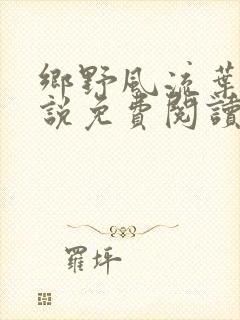 鄉野風流葉
說免費閱讀
羅坪